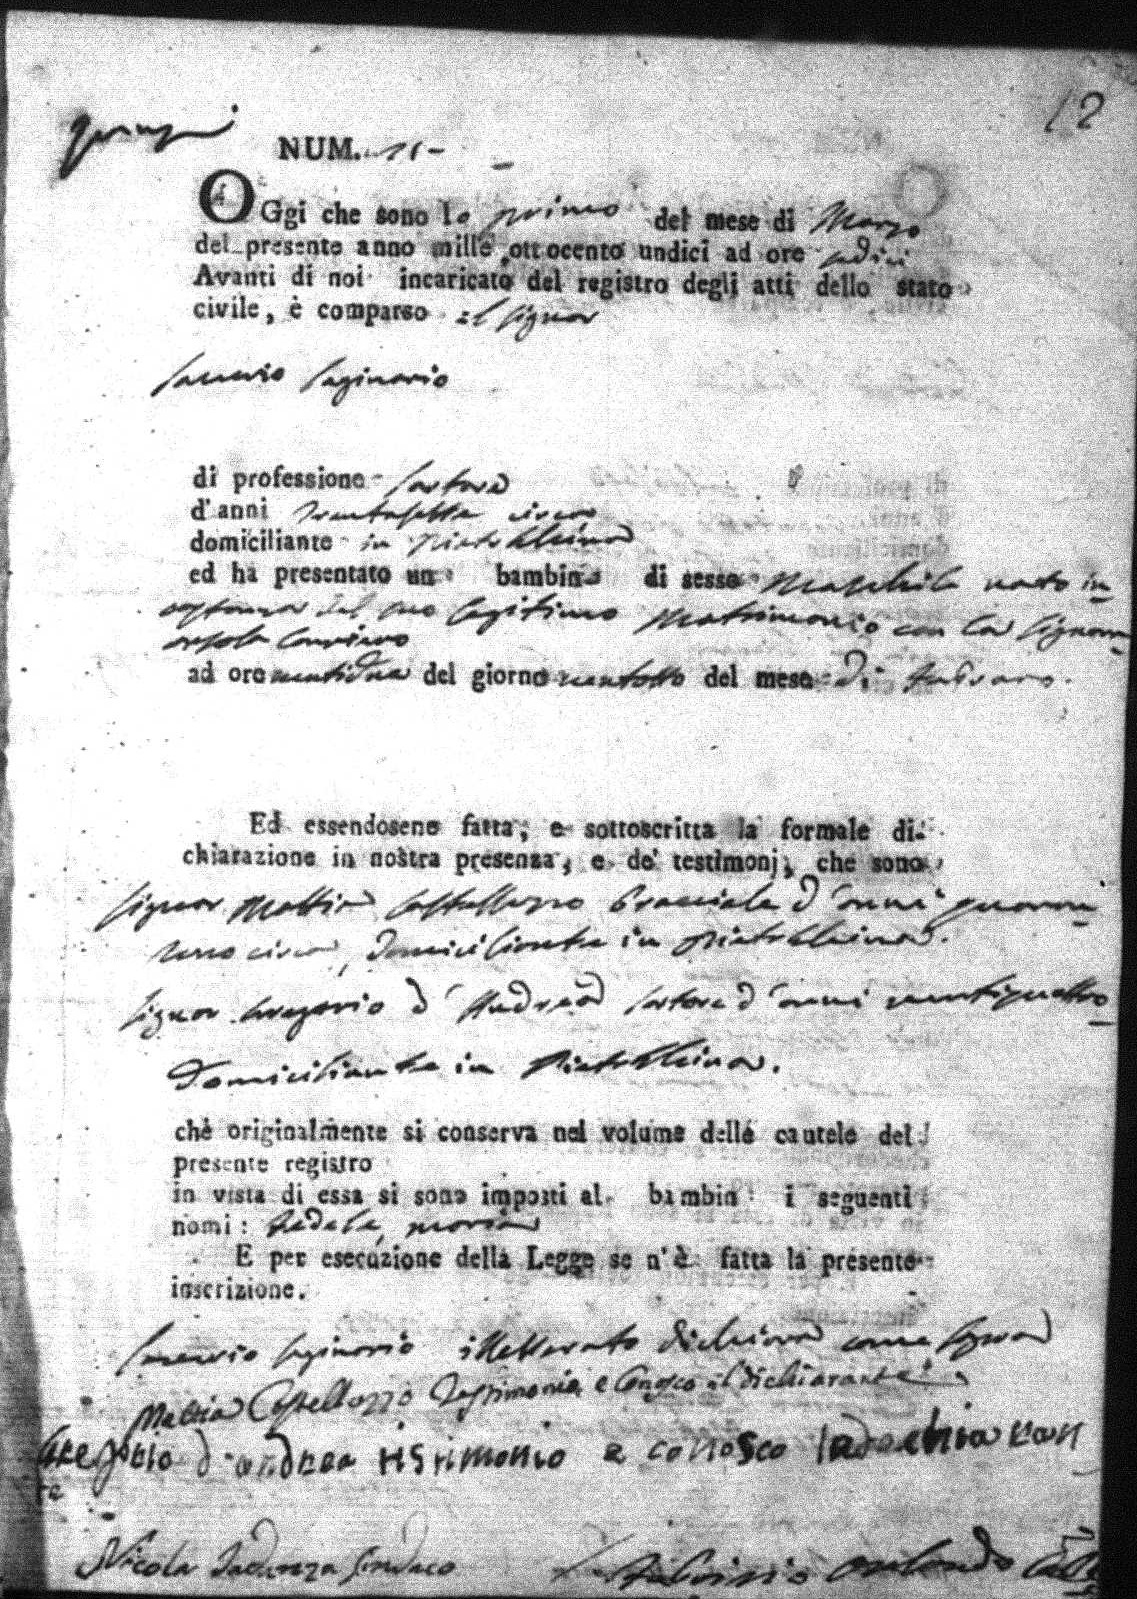 12
NUM. 11
OGgi che sono lo primo del mese di Marzo
del presente anno mille ottocento undici ad ore sedici
Avanti di noi incaricato del registro degli atti dello stato
civile, è comparso il Signor
Saverio Saginario
di professione Sartore
d'anni trentasette circa
domiciliante in Pietrelcina
ed ha presentato un bambino di sesso Maschile nato in
costanza del suo legitimo Matrimonio con la Signora
Orsola
ad ore ventidue del giorno ventotto del mese di Febraro.
Ed essendosene fatta, e sottoscritta la formale di-
chiarazione in nostra presenza, e de' testimonj, che sono
Signor Mattia Castelluzzo Bracciale d'anni quaran
circa, domiciliante in Pietrelcina.
Signor Gregorio d'Andrea Sartore d'anni ventiquattro
domiciliante in Pietrelcina.
chè originalmente si conserva nel volume delle cautele del
presente registro
in vista di essa si sono imposti al bambin i seguenti
nomi: Fedele, Maria
E per esecuzione della Legge se n'è fatta la presente
inscrizione.
Saverio Saginario illetterato dichiara come sopra
Mattia Castelluzzo Testimonio e Conosco il dichiarante
Gregorio d'andrea tistimonio e conosco ladechiaran
te
Nicola Iadanza Sindaco
Orlando